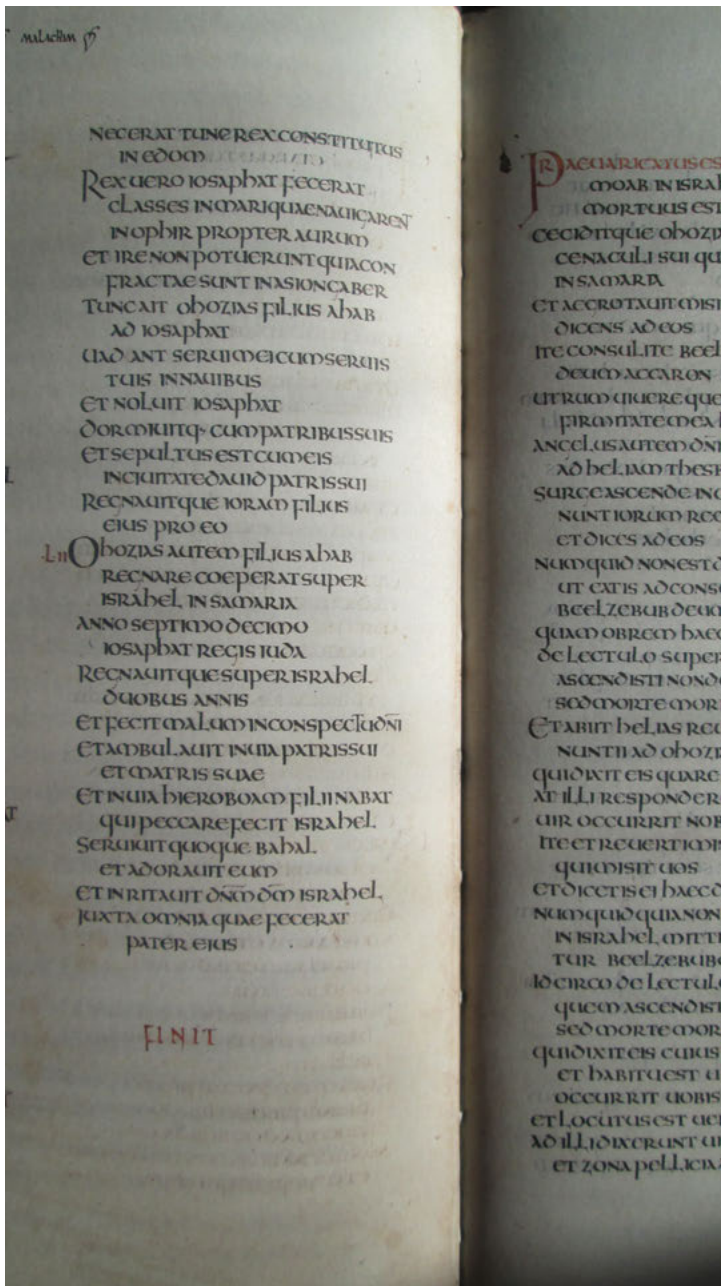 MALACHIM
NEC ERAT TUNC REX CONSTITUTUS
IN EDOM
REX UERO IOSAPHAT FECERAT
CLASSES IN MARI QUAE NAUIGAREN̄
IN OPHIR PROPTER AURUM
ET IRE NON POTUERUNT QUIA CON
FRACTAE SUNT IN ASIONGABER
TUNC AIT OHOZIAS FILIUS AHAB
AD IOSAPHAT
UADANT SERUI MEI CUM SERUIS
TUIS IN NAUIBUS
ET NOLUIT IOSAPHAT
DORMIUITQ· CUM PATRIBUS SUIS
ET SEPULTUS EST CUM EIS
IN CIUITATE DAUID PATRIS SUI
REGNAUITQUE IORAM FILIUS
EIUS PRO EO
·LII OHOZIAS AUTEM FILIUS AHAB
REGNARE COEPERAT SUPER
ISRAHEL IN SAMARIA
ANNO SEPTIMO DECIMO
IOSAPHAT REGIS IUDA
REGNAUITQUE SUPER ISRAHEL
DUOBUS ANNIS
ET FECIT MALUM IN CONSPECTU DN̄I
ET AMBULAUIT IN UIA PATRIS SUI
ET MATRIS SUAE
ET IN UIA HIEROBOAM FILII NABAT
QUI PECCARE FECIT ISRAHEL
SERUIUIT QUOQUE BAHAL
ET ADORAUIT EUM
ET INRITAUIT DN̄M DM̄ ISRAHEL
IUXTA OMNIA QUAE FECERAT
PATER EIUS
FINIT
PRAEUARICATUS ES
MOAB IN ISRAH
MORTUUS EST
CECIDITQUE OHOZIA
CENACULI SUI QU
IN SAMARIA
ET AEGROTAUIT MISI
DICENS AD EOS
ITE CONSULITE BEEL
DEUM ACCARON
UTRUM UIUERE QUE
FIRMITATE MEA
ANGELUS AUTEM DN̄I
AD HELIAM THESB
SURGE ASCENDE IN O
NUNTIORUM REG
ET DICES AD EOS
NUMQUID NON EST D
UT EATIS AD CONS
BEELZEBUB DEUM
QUAM OBREM HAEC
DE LECTULO SUPER
ASCENDISTI NON DE
SED MORTE MOR
ET ABIIT HELIAS REU
NUNTII AD OHOZI
QUI DIXIT EIS QUARE
AT ILLI RESPONDER
UIR OCCURRIT NOB
ITE ET REUERTIMI
QUI MISIT UOS
ET DICETIS EI HAEC D
NUMQUID QUIA NON
IN ISRAHEL MITTI
TUR BEELZEBUB
IDCIRCO DE LECTULO
QUEM ASCENDIST
SED MORTE MOR
QUI DIXIT EIS CUIUS
ET HABITUS EST U
OCCURRIT UOBIS
ET LOCUTUS EST UE
AD ILLI DIXERUNT UI
ET ZONA PELLICIA